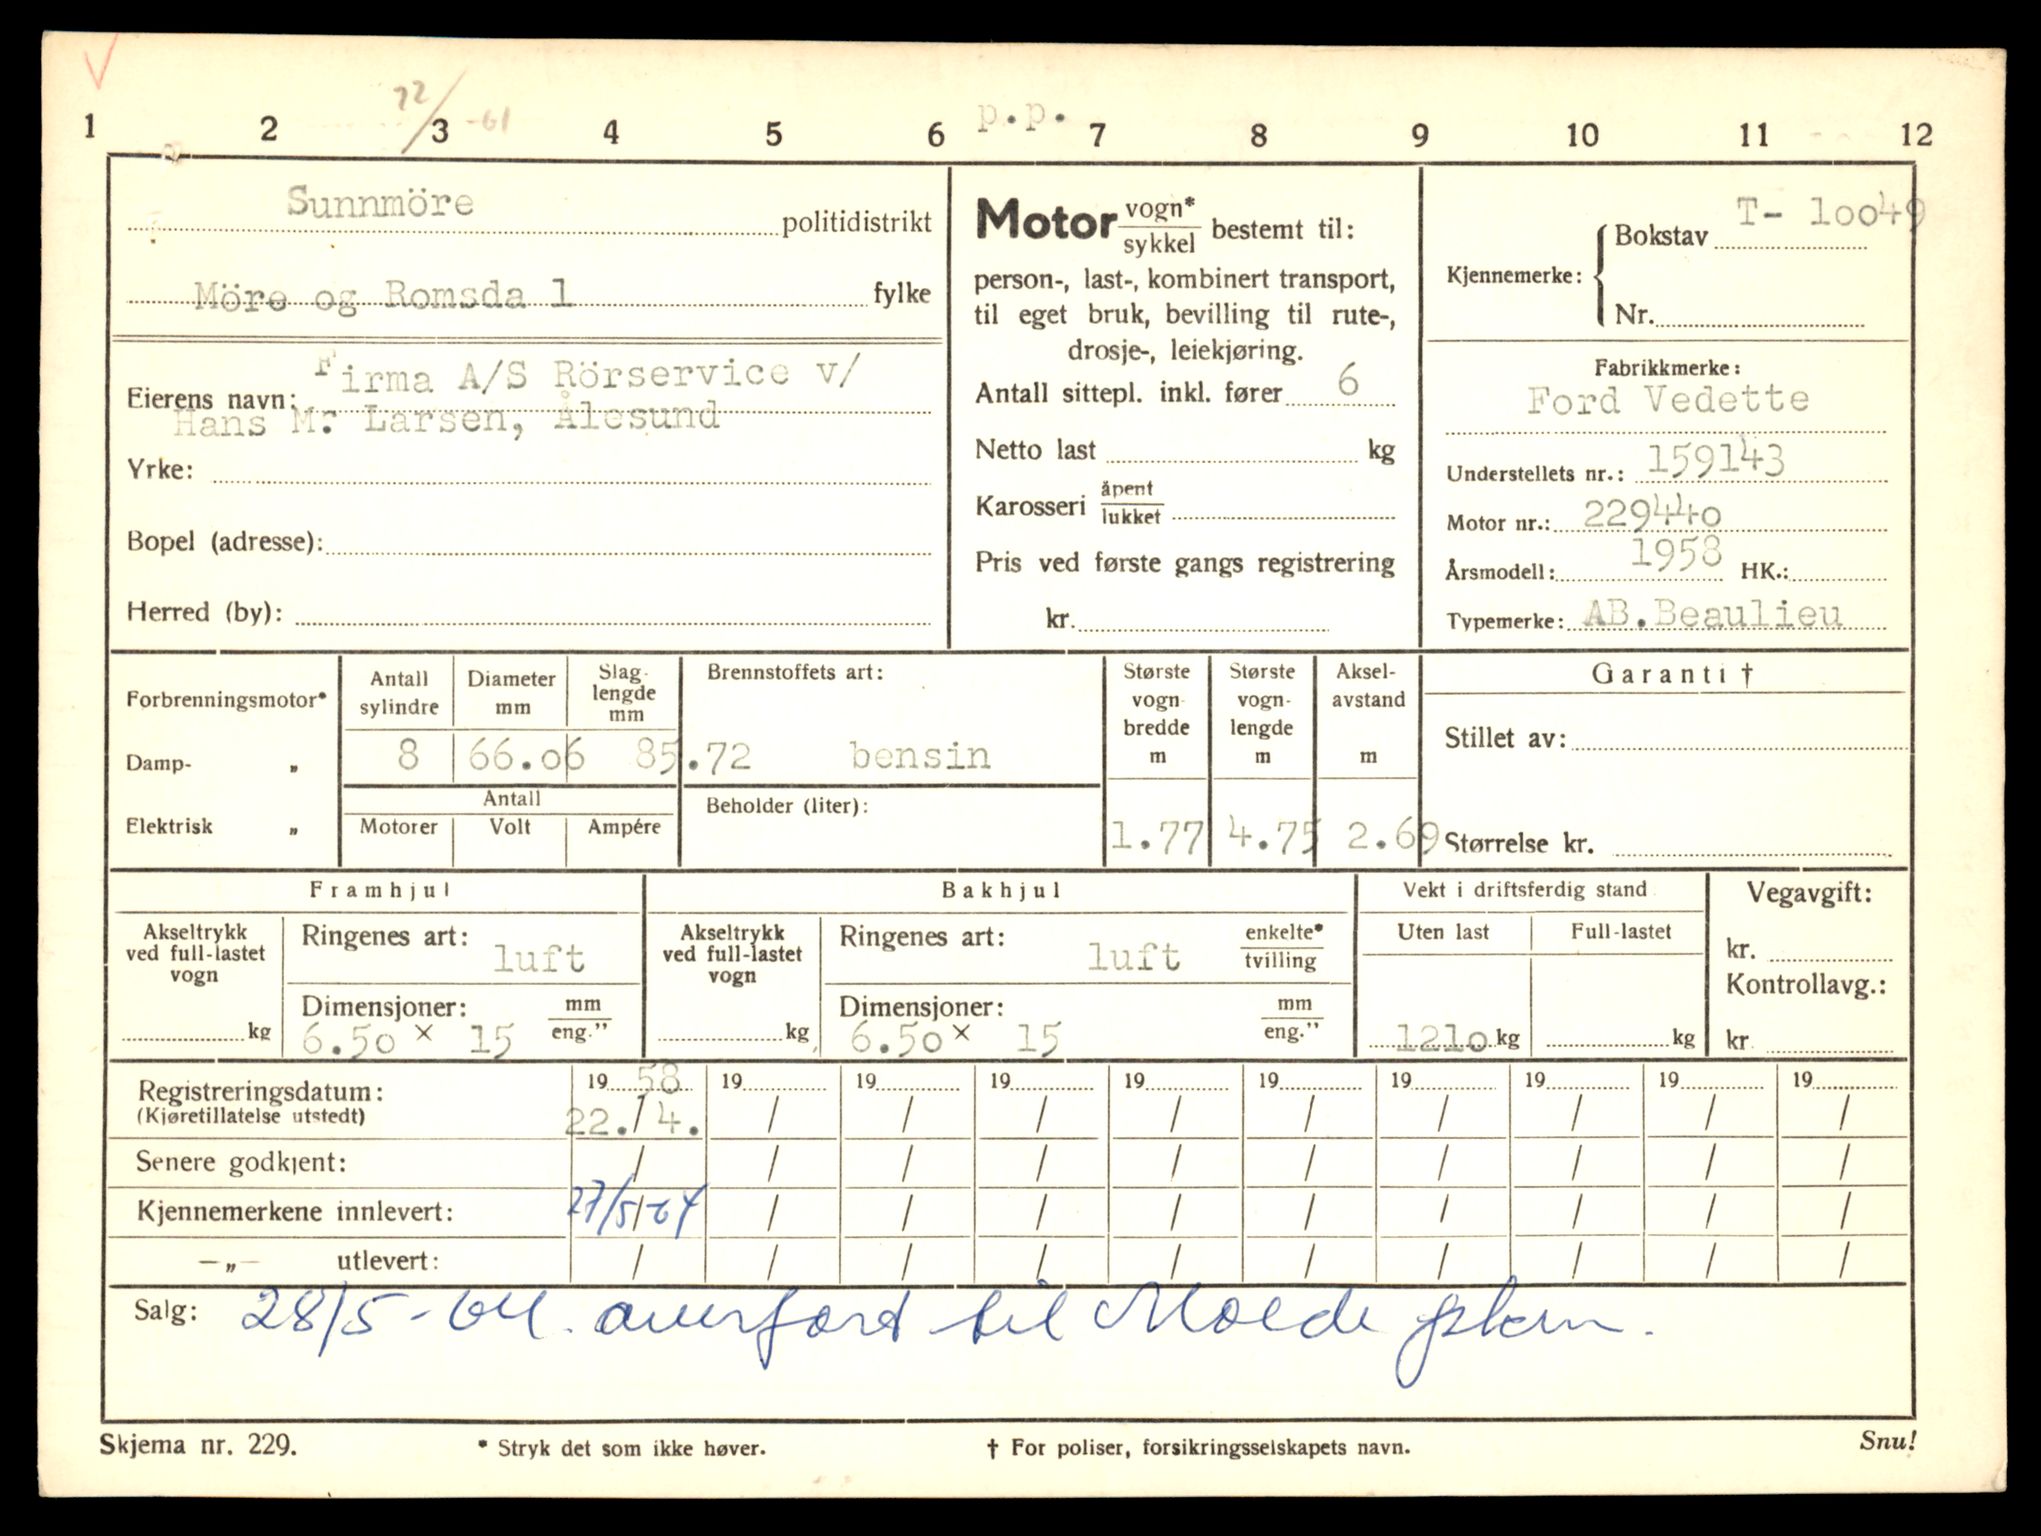 22/ -61
p.p.
1 2 3 4 5 6 7 8 9 10 11 12
Sunnmöre politidistrikt
Möre og Romsda l fylke
Firma A/S Rörservice v/
Eierens navn:
Hans M. Larsen, Ålesund
Yrke:
Bopel (adresse):
Herred (by):
Motor vogn* / sykkel bestemt til:
person-, last-, kombinert transport,
til eget bruk, bevilling til rute-,
drosje-, leiekjøring.
Antall sittepl. inkl. fører 6
Netto last kg
Karosseri åpent / lukket
Pris ved første gangs registrering
kr.
T- 10049
Kjennemerke: { Bokstav
Nr.
Fabrikkmerke:
Ford Vedette
Understellets nr.: 159143
Motor nr.: 229440
Årsmodell: 1958 HK.:
Typemerke: AB.Beaulieu
Forbrenningsmotor*
Damp- „
Elektrisk „
Antall sylindre
Diameter mm
Slag- lengde mm
8 66.06 85.72
Antall
Motorer Volt Ampére
Brennstoffets art:
bensin
Beholder (liter):
Største vogn- bredde m
1.77
Største vogn- lengde m
4.75
Aksel- avstand m
2.69
Garanti †
Stillet av:
Størrelse kr.
Framhjul
Akseltrykk ved full-lastet vogn
kg
Ringenes art: luft
Dimensjoner: mm / eng."
6.50 × 15
Bakhjul
Akseltrykk ved full-lastet vogn
kg
Ringenes art: luft enkelte* / tvilling
Dimensjoner: mm / eng."
6.50 × 15
Vekt i driftsferdig stand
Uten last Full-lastet
1210 kg kg
Vegavgift:
kr.
Kontrollavg.:
kr
Registreringsdatum: 19 58 19 19 19 19 19 19 19 19 19
(Kjøretillatelse utstedt) 22./4. / / / / / / / / /
Senere godkjent: / / / / / / / / / /
Kjennemerkene innlevert: 27/5-64 / / / / / / / / /
—„— utlevert: / / / / / / / / / /
Salg: 28/5-64. overført til Molde pkm.
Skjema nr. 229. * Stryk det som ikke høver. † For poliser, forsikringsselskapets navn. Snu!